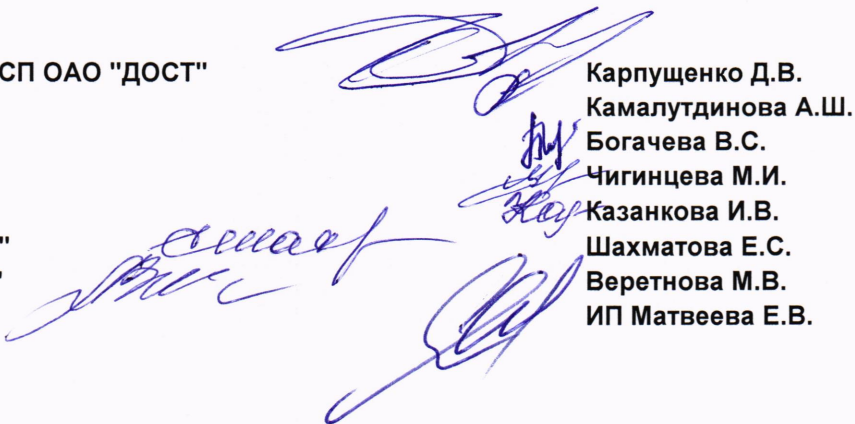 СП ОАО "ДОСТ" Карпущенко Д.В.
Камалутдинова А.Ш.
Богачева В.С.
Чигинцева М.И.
Казанкова И.В.
" Шахматова Е.С.
" Веретнова М.В.
ИП Матвеева Е.В.